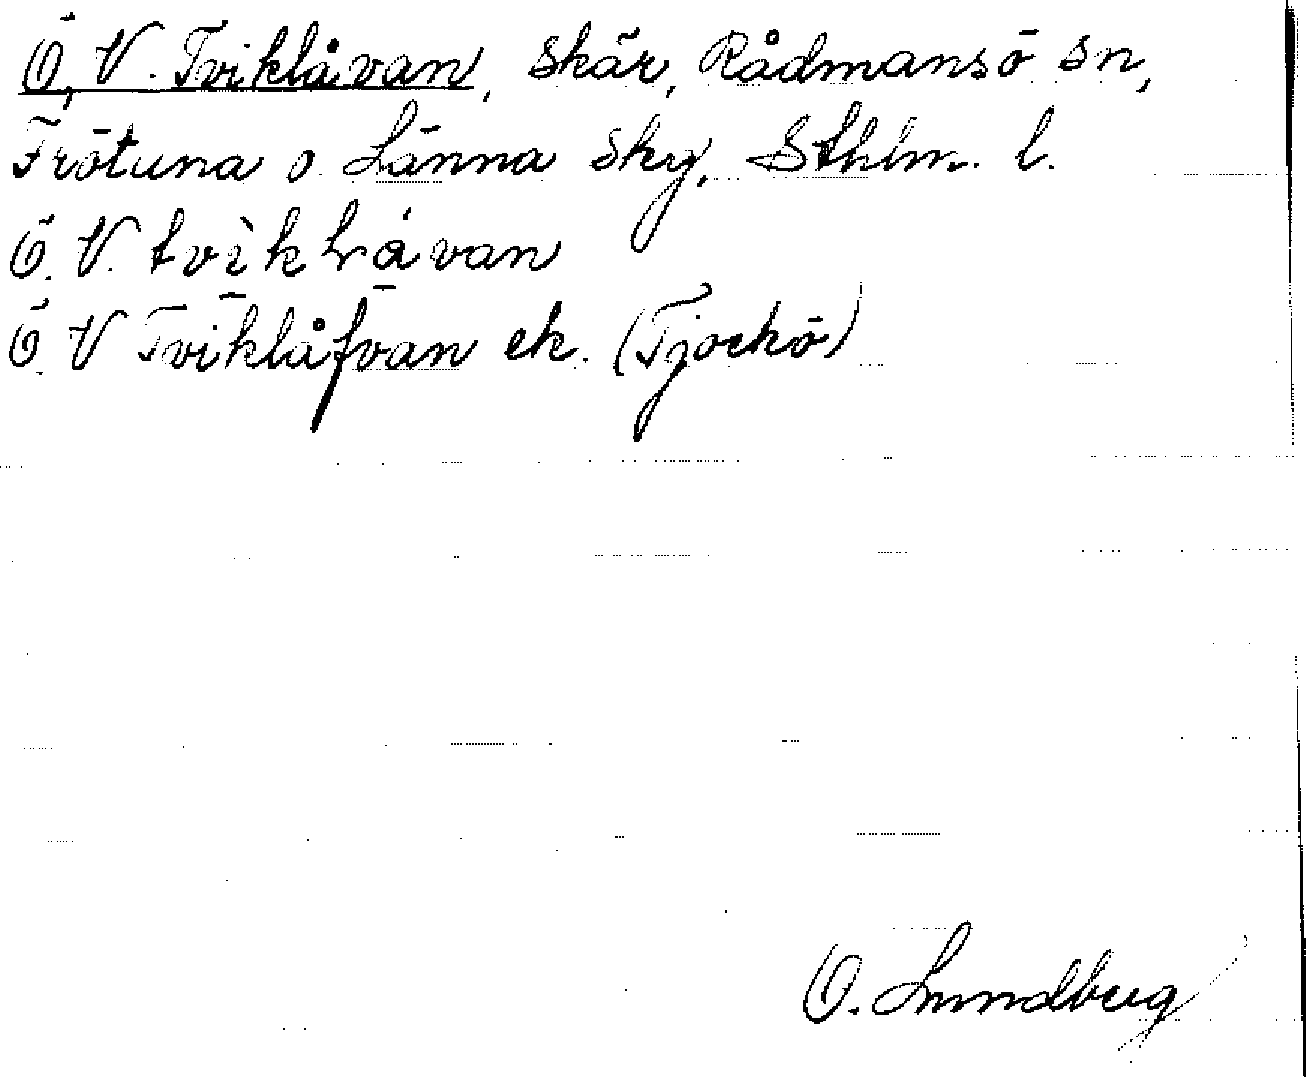 Ö, V. Tviklåvan, skär, Rådmansö sn,
Frötuna o. Länna skg, Sthlm. l.
Ö. V. tvìklåvan
Ö. V Tviklåfvan ek. (Tjockö)
O. Lundberg